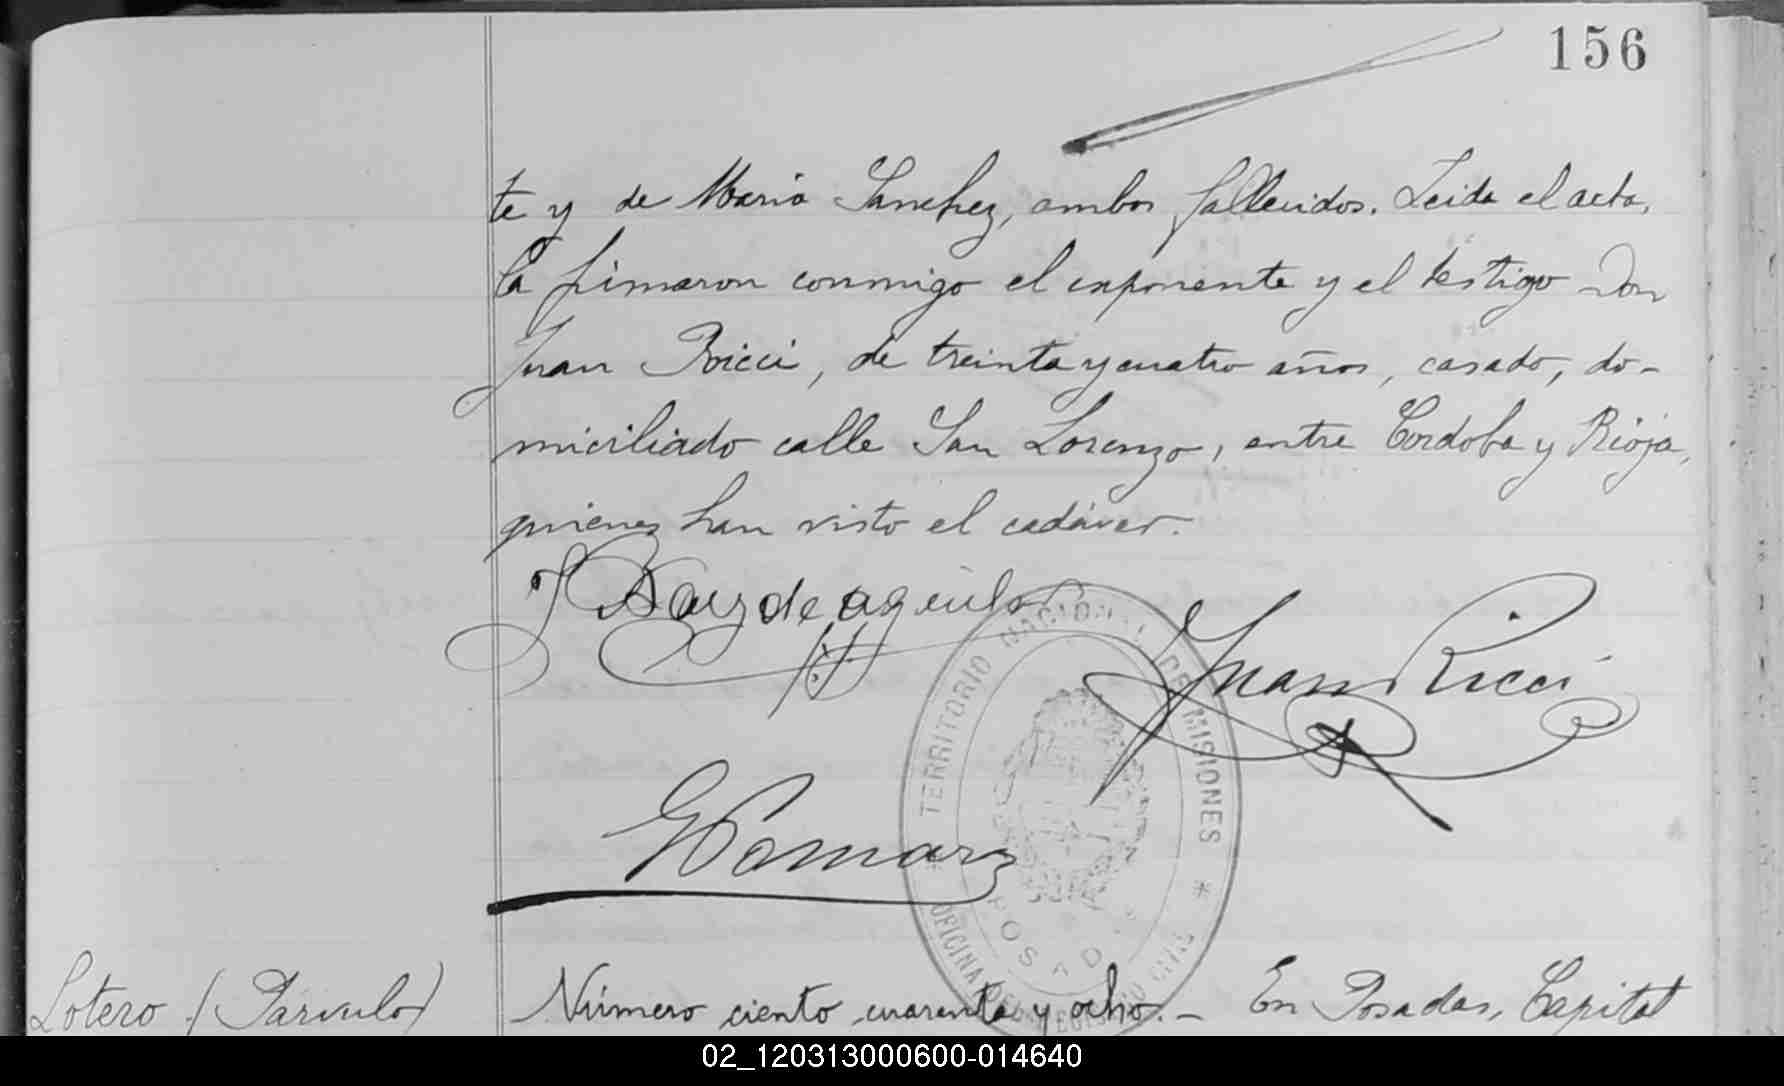 156
te y de Maria Sanchez, ambos fallecidos. Leida el acta,
la firmaron conmigo el exponente y el testigo Don
Juan Ricci, de treinta y cuatro años, casado, do-
miciliado calle San Lorenzo, entre Cordoba y Rioja,
quienes han visto el cadáver.
de aguilar
Juan Ricci
TERRITORIO NACIONAL DE MISIONES
POSADAS
OFICINA DEL REGISTRO CIVIL
Lotero (Párvulo) Número ciento cuarenta y ocho. - En Posadas, Capital
02_120313000600-014640